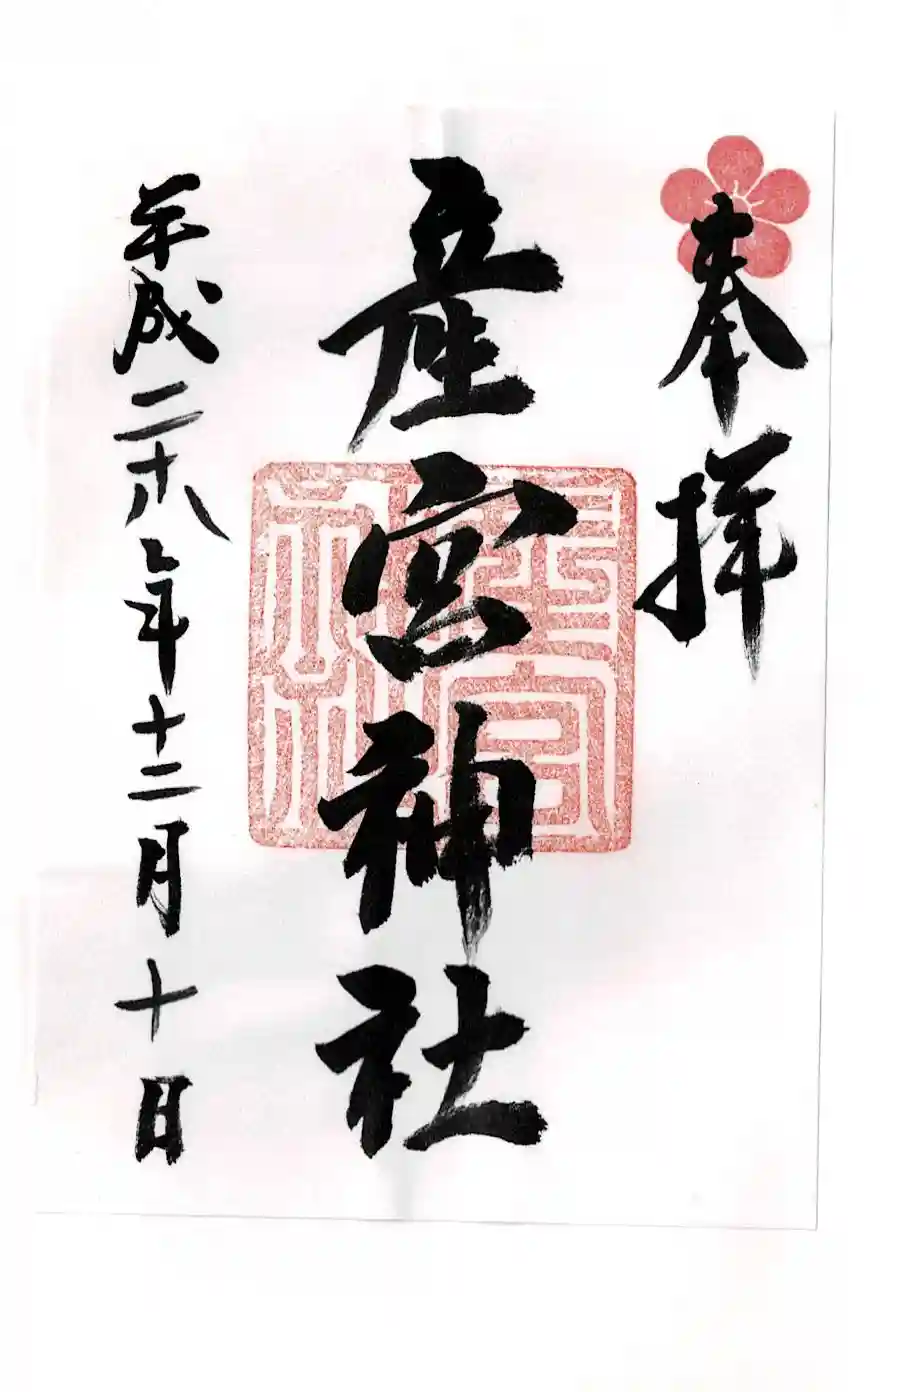 奉拝
産宮神社
平成二十八年十二月十日
産宮神社